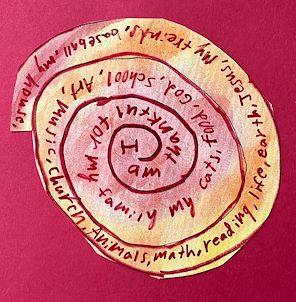 I am thankful for my family my cats, food, God, school, Art, music, church, Animals, math, reading, life, earth, Jesus, my friends, baseball, my house